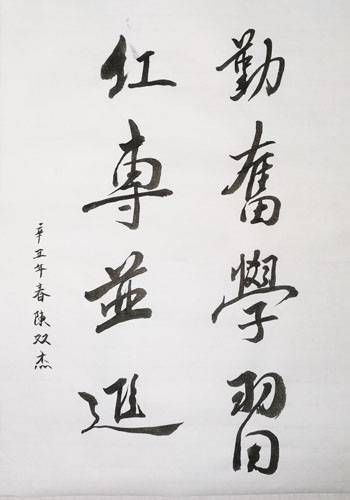 勤奮學習
红專並進
辛丑年春陳双杰